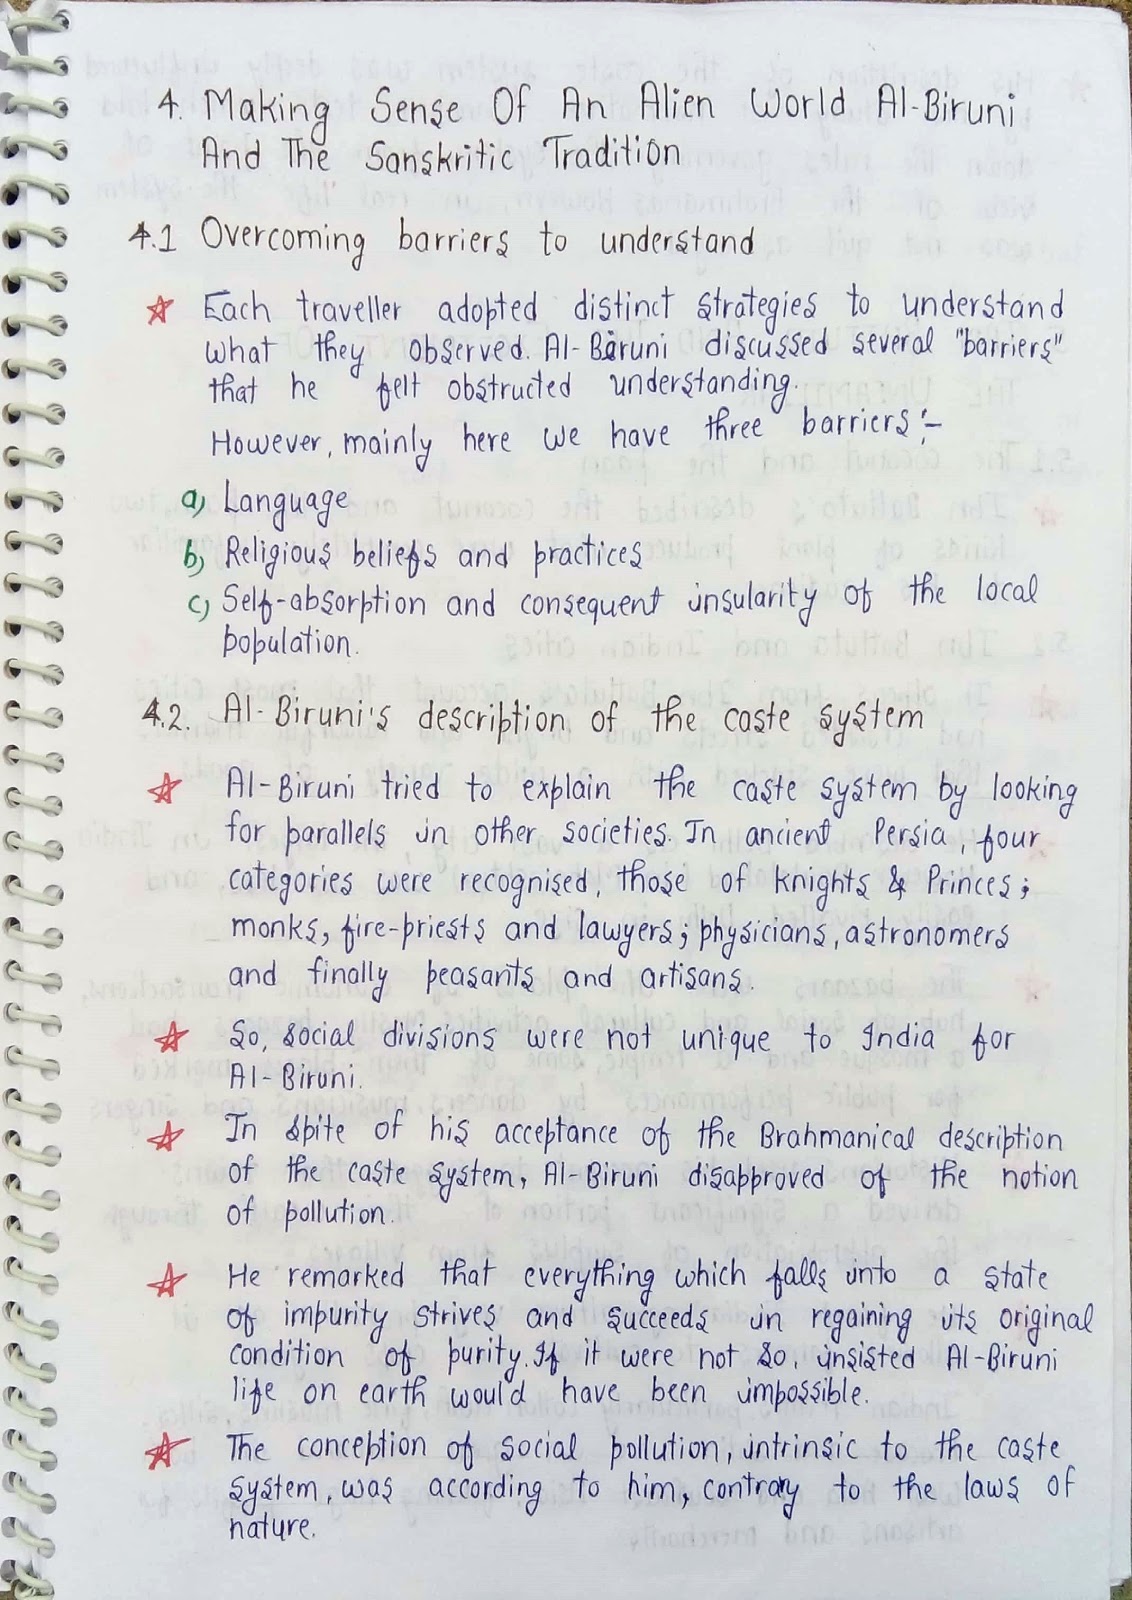 4. Making Sense Of An Alien World Al-Biruni
And The Sanskritic Tradition
4.1 Overcoming barriers to understand
☆ Each traveller adopted distinct strategies to understand
what they observed. Al-Biruni discussed several "barriers"
that he felt obstructed understanding.
However, mainly here we have three barriers :-
a) Language
b) Religious beliefs and practices
c) Self-absorption and consequent insularity of the local
population.
4.2. Al-Biruni's description of the caste system
☆ Al-Biruni tried to explain the caste system by looking
for parallels in other societies. In ancient Persia, four
categories were recognised, those of knights & Princes;
monks, fire-priests and lawyers; physicians, astronomers
and finally peasants and artisans.
☆ So, social divisions were not unique to India for
Al-Biruni.
☆ In spite of his acceptance of the Brahmanical description
of the caste system, Al-Biruni disapproved of the notion
of pollution.
☆ He remarked that everything which falls into a state
of impurity strives and succeeds in regaining its original
condition of purity. If it were not so, insisted Al-Biruni
life on earth would have been impossible.
☆ The conception of social pollution, intrinsic to the caste
system, was according to him, contrary to the laws of
nature.